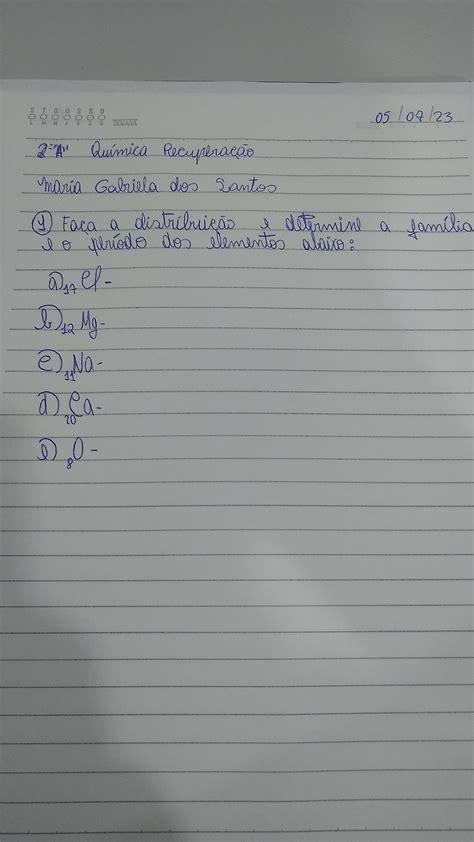 S T Q Q S S D
D L M M J V S D
SEMANA
05/07/23
2º "A" Química Recuperação
Maria Gabriela dos Santos
1) Faça a distribuição e determine a família
e o período dos elementos abaixo:
a) 17 Cl -
b) 12 Mg -
c) 11 Na -
d) 20 Ca -
e) 8 O -